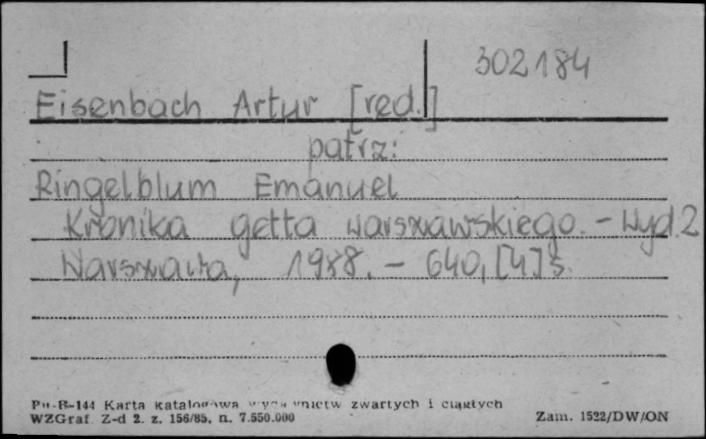 302184
Eisenbach Artur [red.]
patrz:
Ringelblum Emanuel
Kronika getta warszawskiego. - Wyd. 2
Warszawa, 1988. - 640, [4] s.
Pu-B-144 Karta katalogowa wydawnictw zwartych i ciągłych
WZGraf. Z-d 2. z. 156/85, n. 7.550.000
Zam. 1522/DW/ON